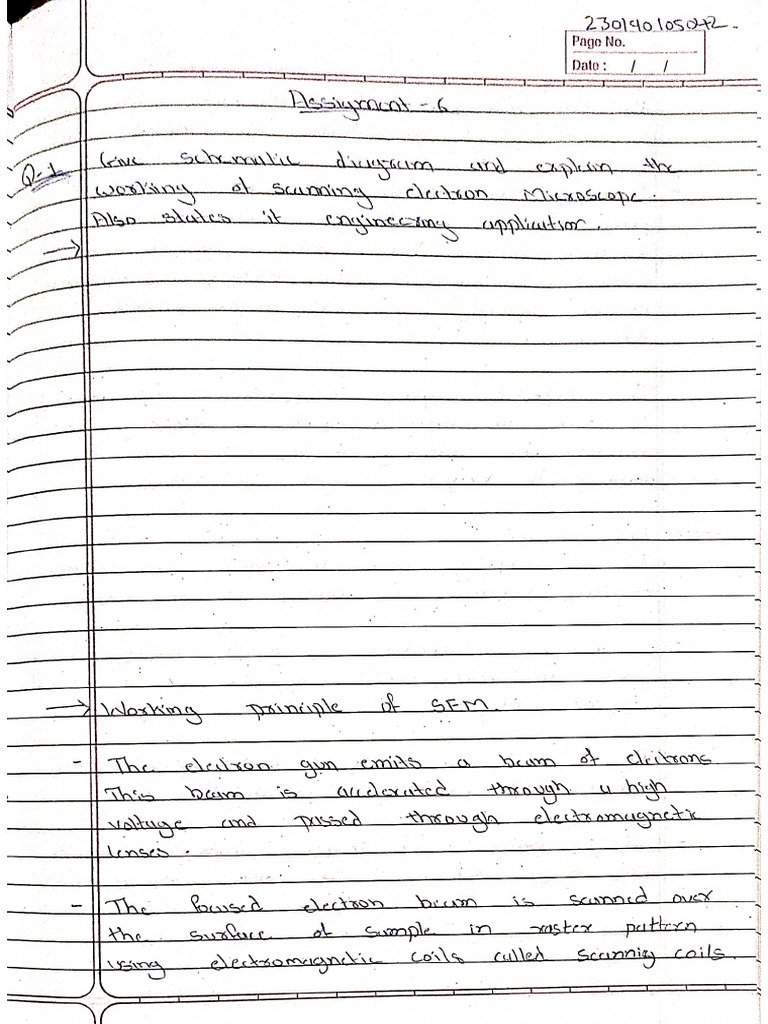 230190105042.
Page No.
Date : / /
Assignment - 6
Q-1 Give schematic diagram and explain the
working of scanning electron Microscope.
Also states it engineering application.
→
→ Working principle of SEM.
- The electron gun emits a beam of electrons
This beam is accelerated through a high
voltage and passed through electromagnetic
lenses.
- The focused electron beam is scanned over
the surface of sample in raster pattern
using electromagnetic coils called scannig coils.